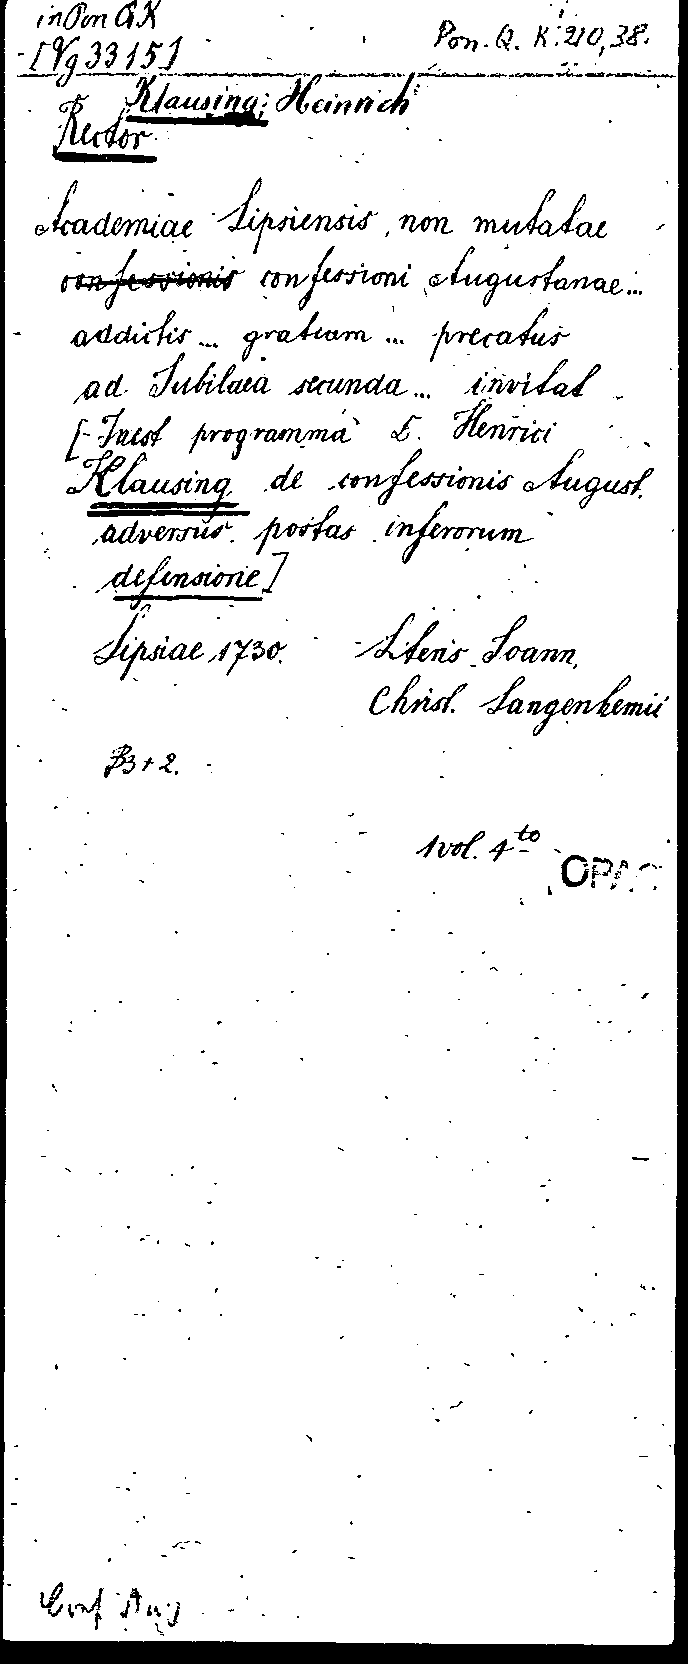 in Pon QK
Pon. Q. K. 210, 38.
[Vg 3315]
Klausing, Heinrich
Rector
Academiae Lipsiensis, non mutatae
confessionis confessioni Augustanae...
addictis... gratiam... precatus
ad Jubilaea secunda... invitat
[Inest programma D. Henrici
Klausing de confessionis August.
adversus portas inferorum
defensione]
Lipsiae 1730. Literis Joann.
Christ. Langenhemii
B3 + 2.
1 vol. 4to
OPAC
Conf Aug